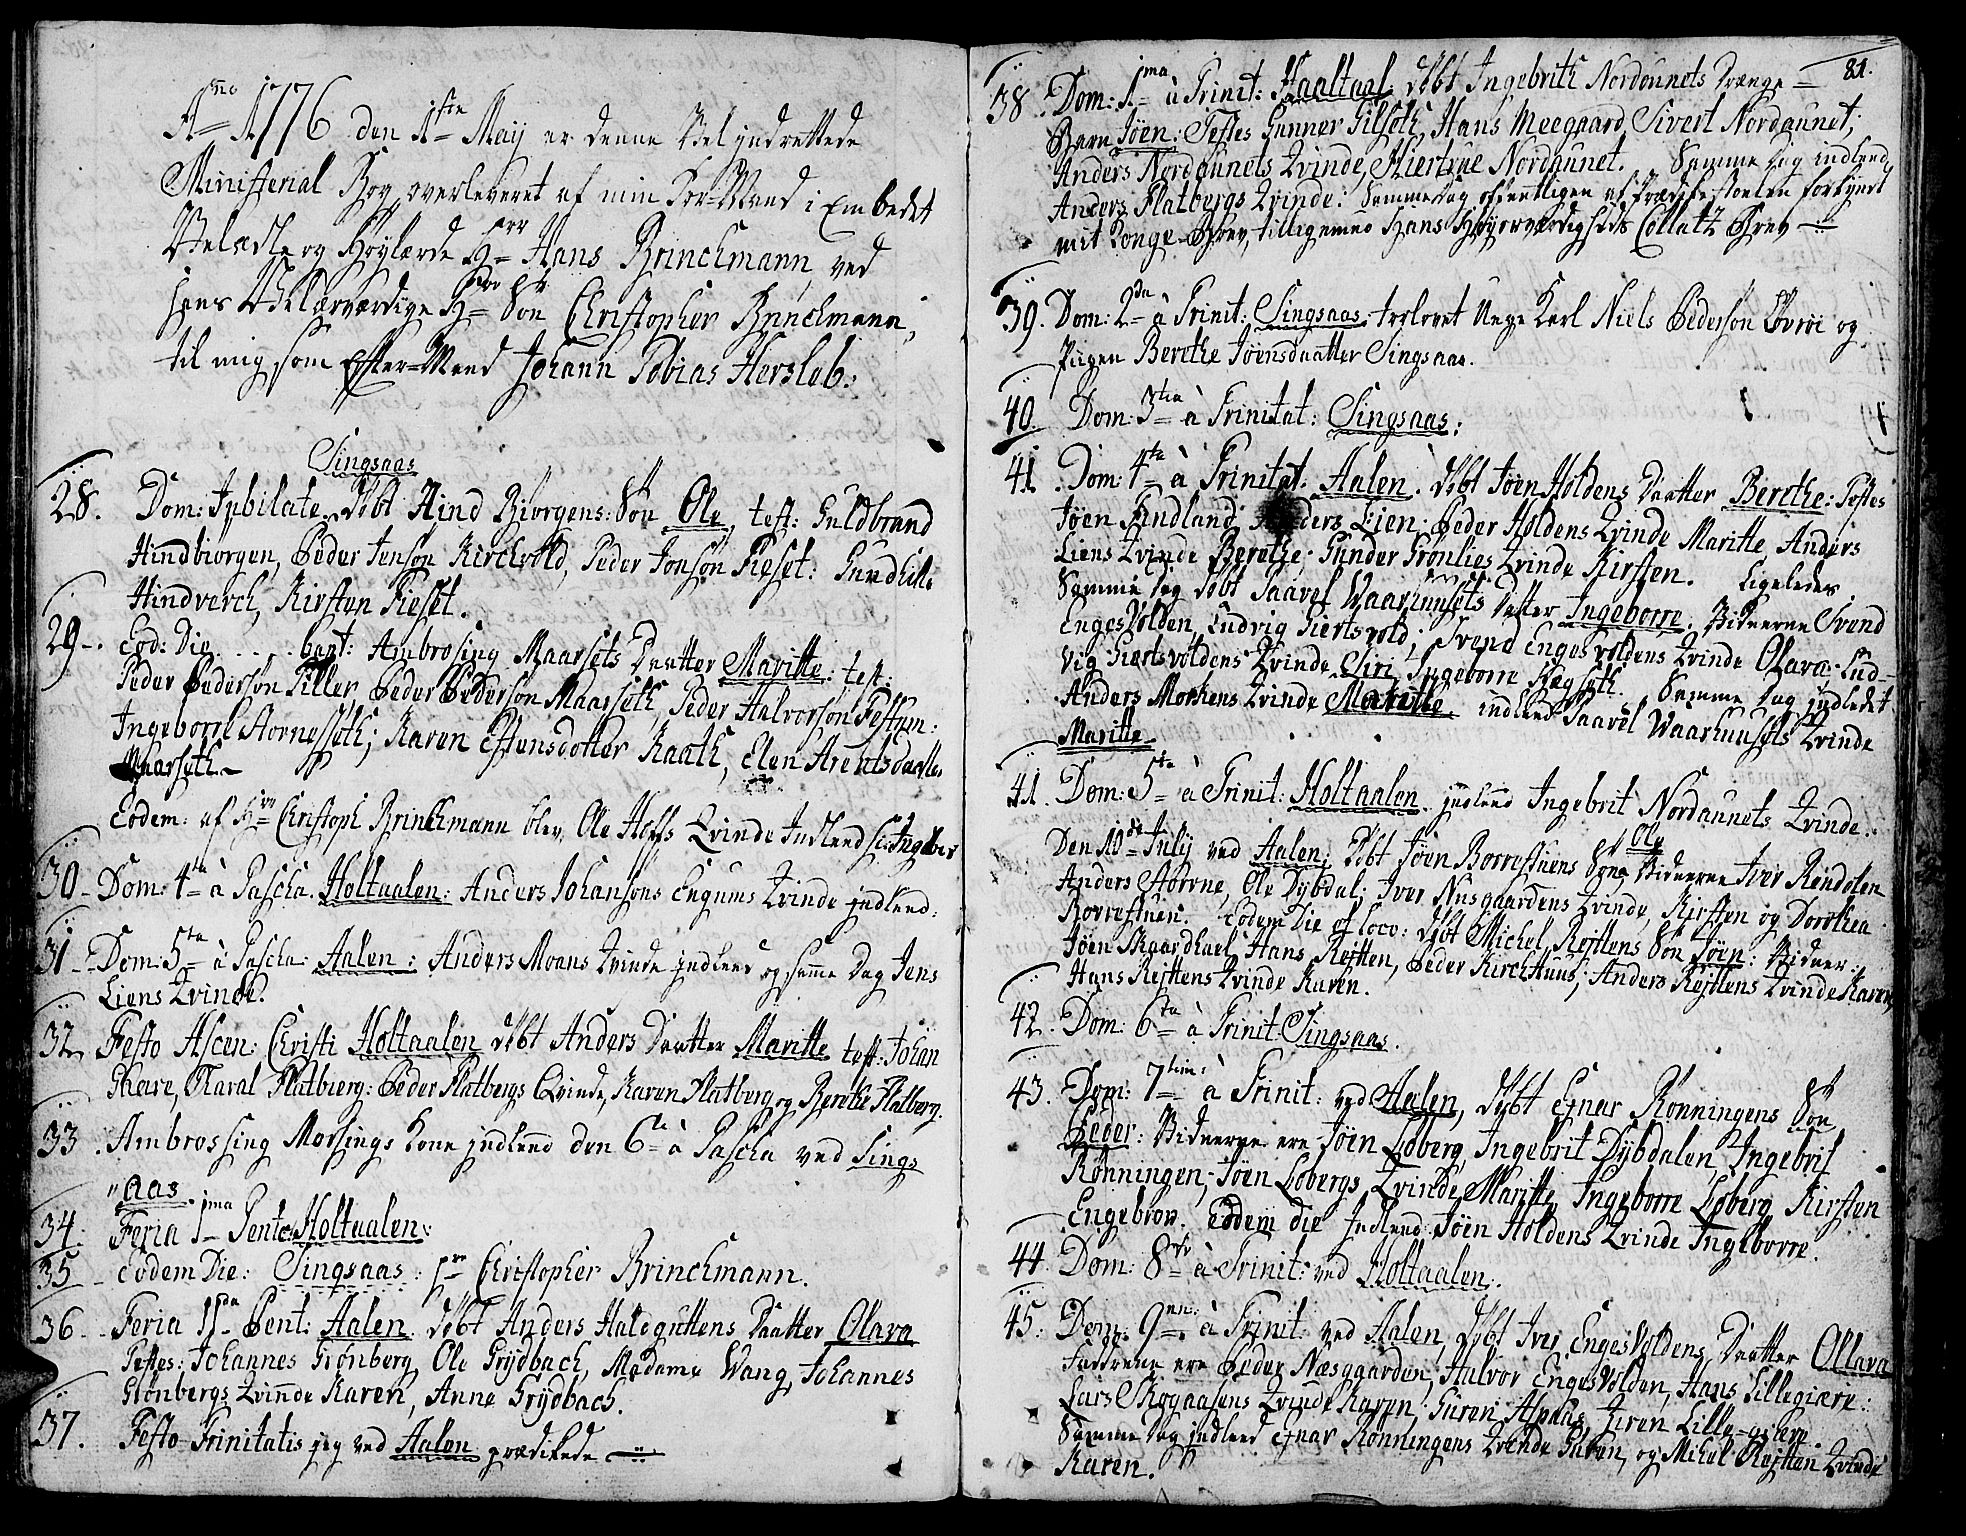 Ao 1776 den 1ste Maij er denne Vel indrettede
Ministerial Bog overleveret af min For-Mand i Embedet
Velædle og Høylærde Hrr Hans Brinchmann, ved
hans Velærværdige Hr Søn Christopher Brinchmann,
til mig som Efter-Mand Johann Tobias Hersleb.
Singsaas
28. Dom: Jubilate. døbt Hind Biorgens: Søn Ole, test: Guldbrand
Hindbiorgen, Peder Jensøn Kirchvold, Peder Jonsøn Fieset: Gundhild
Hindverch, Kirsten Fieset.
29. Eod: Die . . . . . Ambrosing Maarsets Daatter Maritte: test:
Peder Pedersøn Tiller, Peder Pedersøn Maarseth, Peder Halvorsøn
Ingeborrl; Karen Estensdotter Kaath, Elen Arentsdaatter
Maarseth.
Eodem: af Hr Christoph Brinchmann blev Ole Hoffs Qvinde Indleed
30 Dom: 4ta à Pascha. Holtaalen: Anders Johansøns Engums Qvinde jndleed:
31 Dom: 5ta à Pascha: Aalen: Anders Moans Qvinde jndleed og samme Dag Jens
Liens Qvinde.
32 Festo Ascen: Christi Holtaalen døbt Anders Daatter Maritte test: Johan
Gheare, Olaval Flatbierg: Peder Flatbergs Qvinde, Karen Flatberg og Berethe Flatberg.
33. Ambrossing Morsings Kone jndleed den 6ta à Pascha ved Sings
"aas.
34. Feria 1ma Pentc: Holtaalen:
35 Eodem Die: Singsaas: pr Christopher Brinchmann.
36 Feria IIda Pent: Aalen. døbt Anders Haldguttens Daatter Olava
Testes: Johannes Grønberg, Ole Grydbach, Madame Wang, Johannes
Grønbergs Qvinde Karen, Anne Grydbach.
37. Festo Trinitatis jeg ved Aalen prædikede
81.
38. Dom: 1ma à Trinit: Haaltaal døbt Ingebrith Nordaunets Drænge-
Barn Jøen: Testes Gunner Gilseth, Hans Meegaard, Sivert Nordaunet;
Anders Nordaunets Qvinde, Hiertrue Nordaunet. Samme Dag indleed
Anders Flatbergs Qvinde. Sammedag offentligen af Prædikestoelen forkyndt
mit Konge-Brev, tilligemed Hans Høyærværdigheds Collatz Brev
39. Dom: 2da à Trinit: Singsaas trolovet Unge Karl Niels Pedersøn Løvrøi og
Pigen Berethe Jøensdaatter Singsaas.
40. Dom: 3tia à Trinitat: Singsaas:
41. Dom: 4ta à Trinitat: Aalen. døbt Jøen Holdens Daatter Berethe: Testes
Jøen Findland, Anders Lien; Peder Holdens Qvinde Maritte, Anders
Liens Qvinde Berethe; Gunder Grønlies Qvinde Kirsten. Ligeledes
Samme Dag døbt Paavel Waarhuusets Datter Ingeborre. Vidnerne Svend
Enges Volden, Ludvig Giertsvold; Svend Engesvoldens Qvinde Olava: Lud-
vig Giertsvoldens Qvinde Siri, Ingeborre. Samme Dag jndledet
Anders Morkens Qvinde Maritte indleed Paavel Waarhuusets Qvinde
Maritte
41. Dom: 5ta à Trinit: Holtaalen. jndleed Ingebrit Nordaunets Qvinde.
Den 10de Julij ved Aalen, døbt Jøen Borrestuens Søn Ole Vidnerne Iver Rendolen
Anders Aorvne, Ole Dybdal; Iver Nusgaardens Qvinde, Kirsten og Dorothea
Borrestuen. Eodem Die et loco: døbt Michel Reittens Søn Jøen: Vidner:
Jøen Skaardhael, Hans Reitten, Peder Kirchhuus; Anders Reittens Qvinde Karen,
Hans Reittens Qvinde Karen.
42. Dom: 6ta à Trinit. Singsaas.
43. Dom: 7tim: à Trinit: ved Aalen, døbt Ejnar Rønningens Søn
Peder: Vidnerne ere Jøen Løberg, Ingebrit Dybdalen, Ingebrit
Rønningen; Jøen Løbergs Qvinde, Maritte, Ingeborre Løberg Kirsten
Engebron. Eodem die Indleed: Jøen Holdens Qvinde Ingeborre.
44. Dom: 8va à Trinit: ved Holtaalen.
45. Dom. 9na: à Trinit: ved Aalen, døbt Iver Enges Voldens Daatter Ollava
Fadrene ere Peder Næsgaarden, Halvor Enges Volden, Hans Lillegiære:
Lars Skogaasens Qvinde Karen; Guren Aspaas, Jøren Lille-giære.
Samme Dag jndleed Ejnar Rønningens Qvinde Guren, og Mikel Reitten Qvinde
Karen.